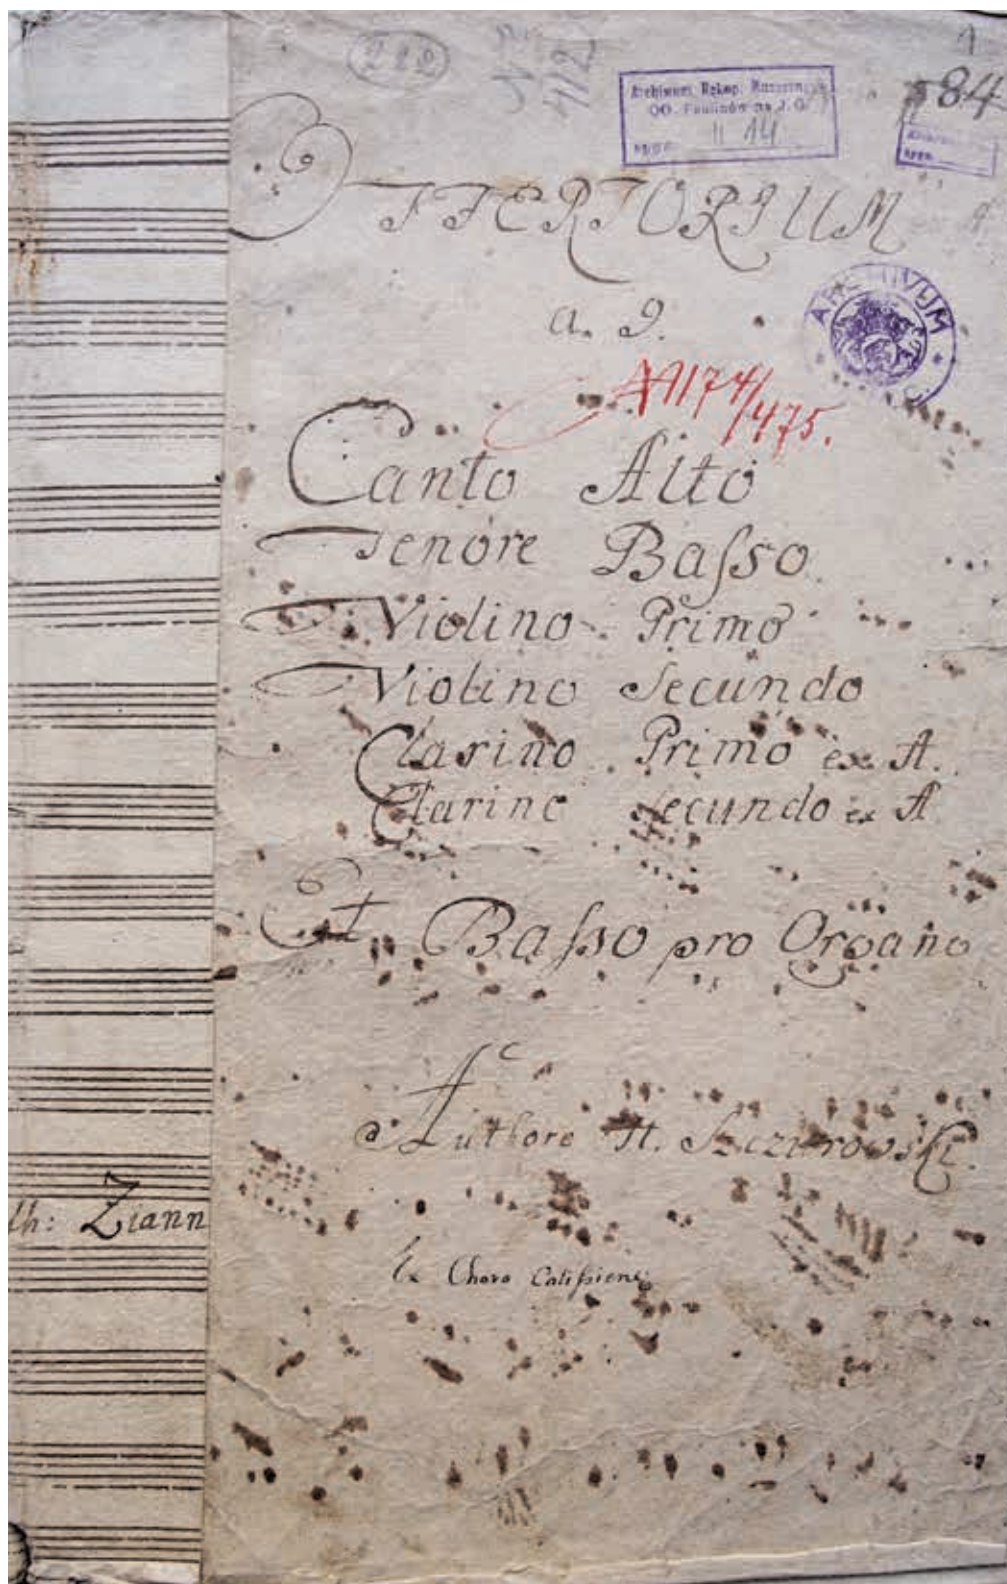 222
N 2
412
1
84
Archiwum Rękop. Muzeum
OO. Paulinów na J. G.
II 14
OFFERTORIUM
a. 9.
ARCHIVUM
AA174/475.
Canto Alto
Tenore Baſso
Violino Primo
Violino Secundo
Clarino Primo ex A.
Clarino Secundo ex A
Et Baſso pro Organo
Authore A. Szczurowski.
lh: Ziann
Ex Choro Calißiensi